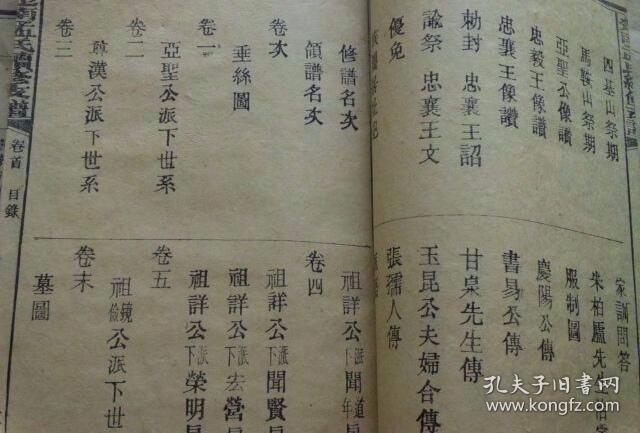 四基山祭期
馬鞍山祭期
亞聖公像讚
忠毅王像讚
忠襄王像讚
勅封 忠襄王詔
諭祭 忠襄王文
優免
家訓問答
朱柏廬先生治家
服制圖
慶陽公傳
書易公傳
甘泉先生傳
玉昆公夫婦合傳
張孺人傳
修譜名次
領譜名次
卷次
垂絲圖
卷一
亞聖公派下世系
卷二
尊漢公派下世系
卷三
祖詳公派下聞道年
卷四
祖詳公派下聞賢
祖詳公派下宏營
祖詳公派下榮明
卷五
祖鏡儉公派下世
卷末
墓圖
卷首 目錄
孔夫子旧书网
www.kongfz.com